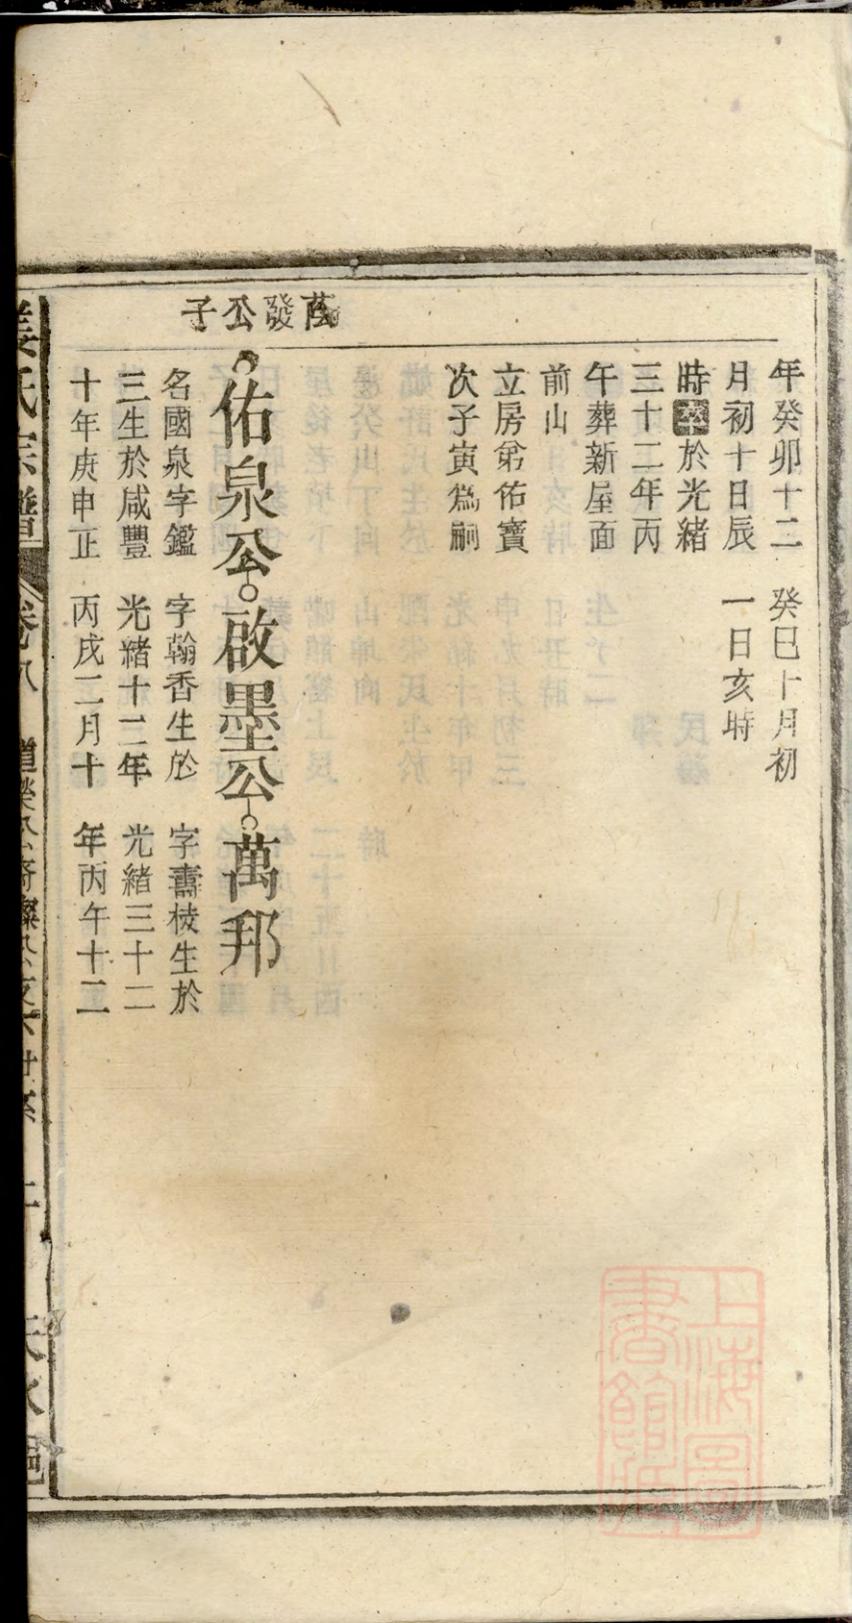 年癸卯十二
月初十日辰
時卒於光緒
三十二年丙
午葬新屋面
前山
立房弟佑寶
次子寅爲嗣
癸巳十月初
一日亥時
蔭發公子
佑泉公
啟墨公
萬邦
名國泉字鑑
三生於咸豐
十年庚申正
字翰香生於
光緒十二年
丙戌二月十
字壽棱生於
光緒三十二
年丙午十二
姜氏宗譜
卷八
上海圖書館藏